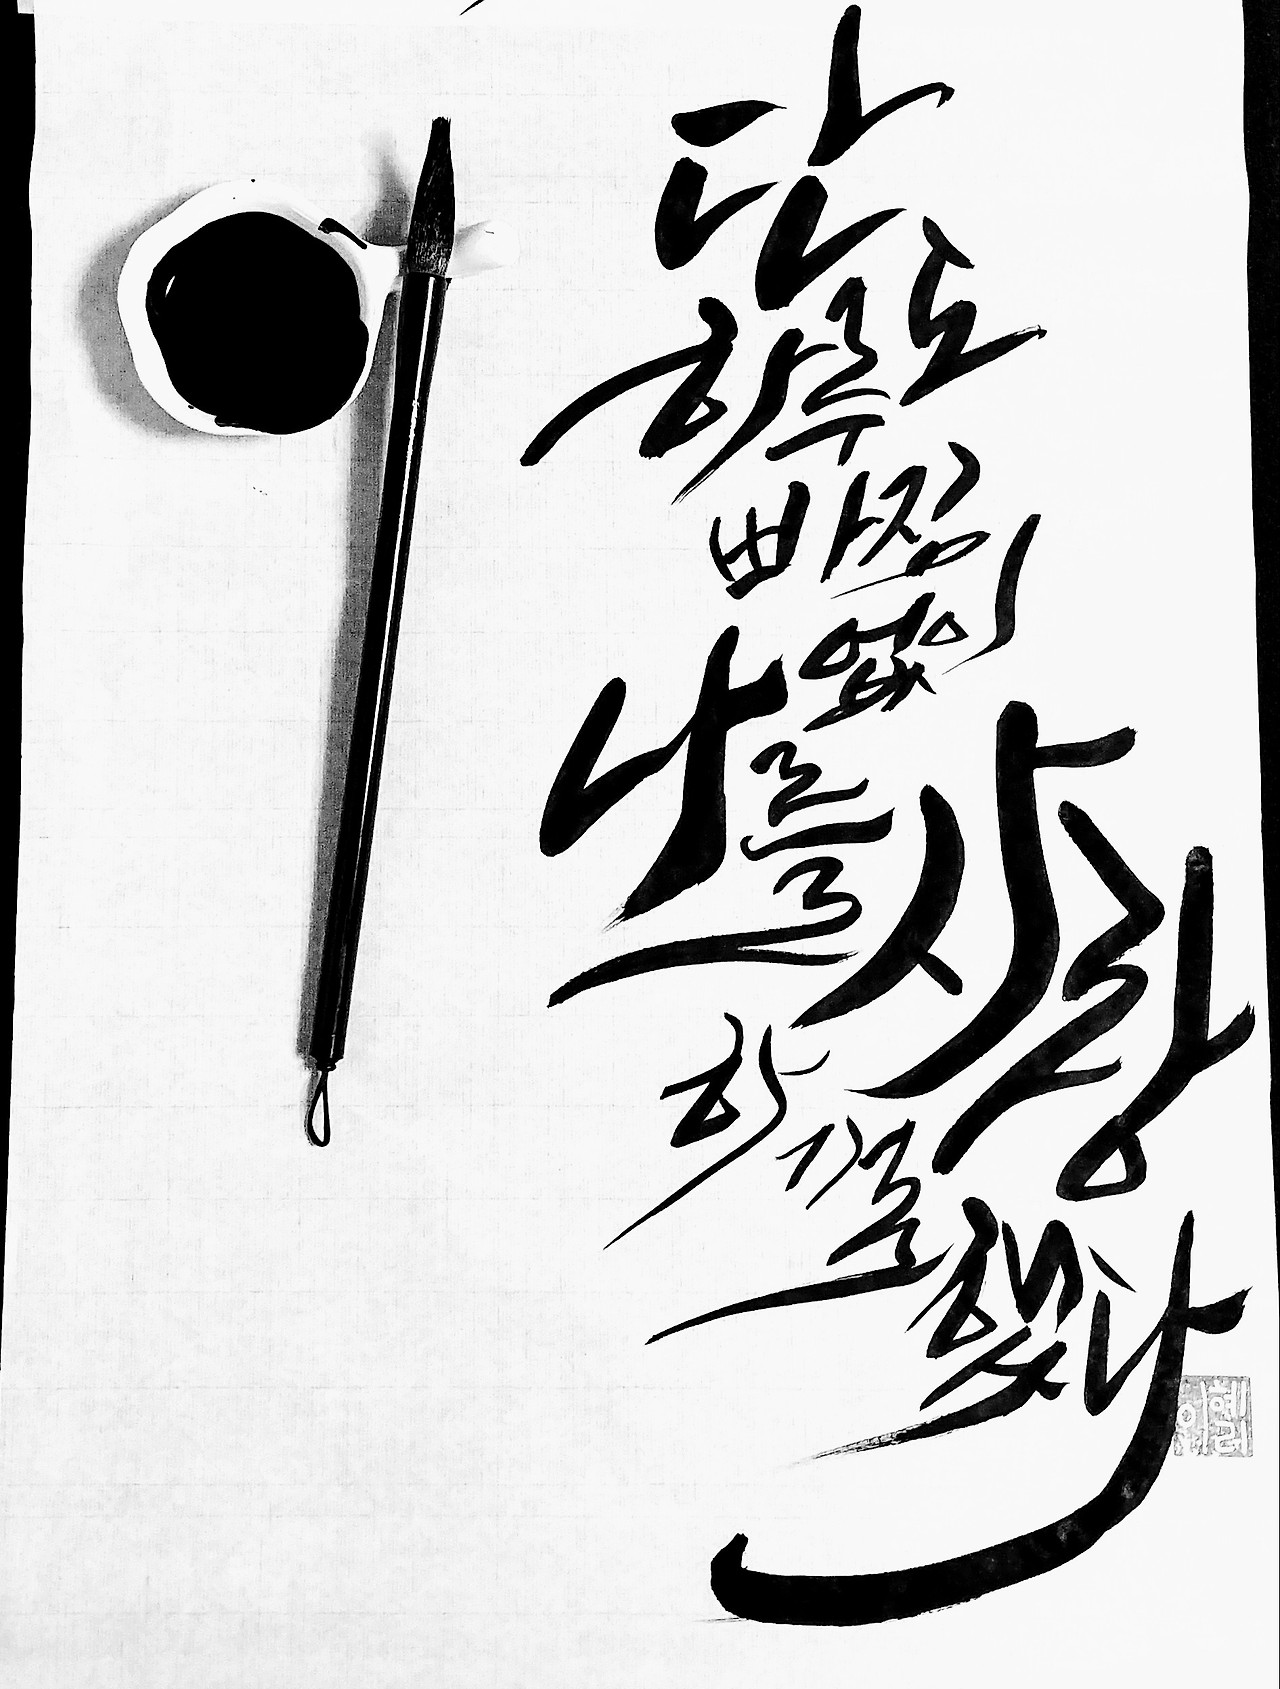 단
하루도
빠짐
없이
나를
사랑
하기로
했다